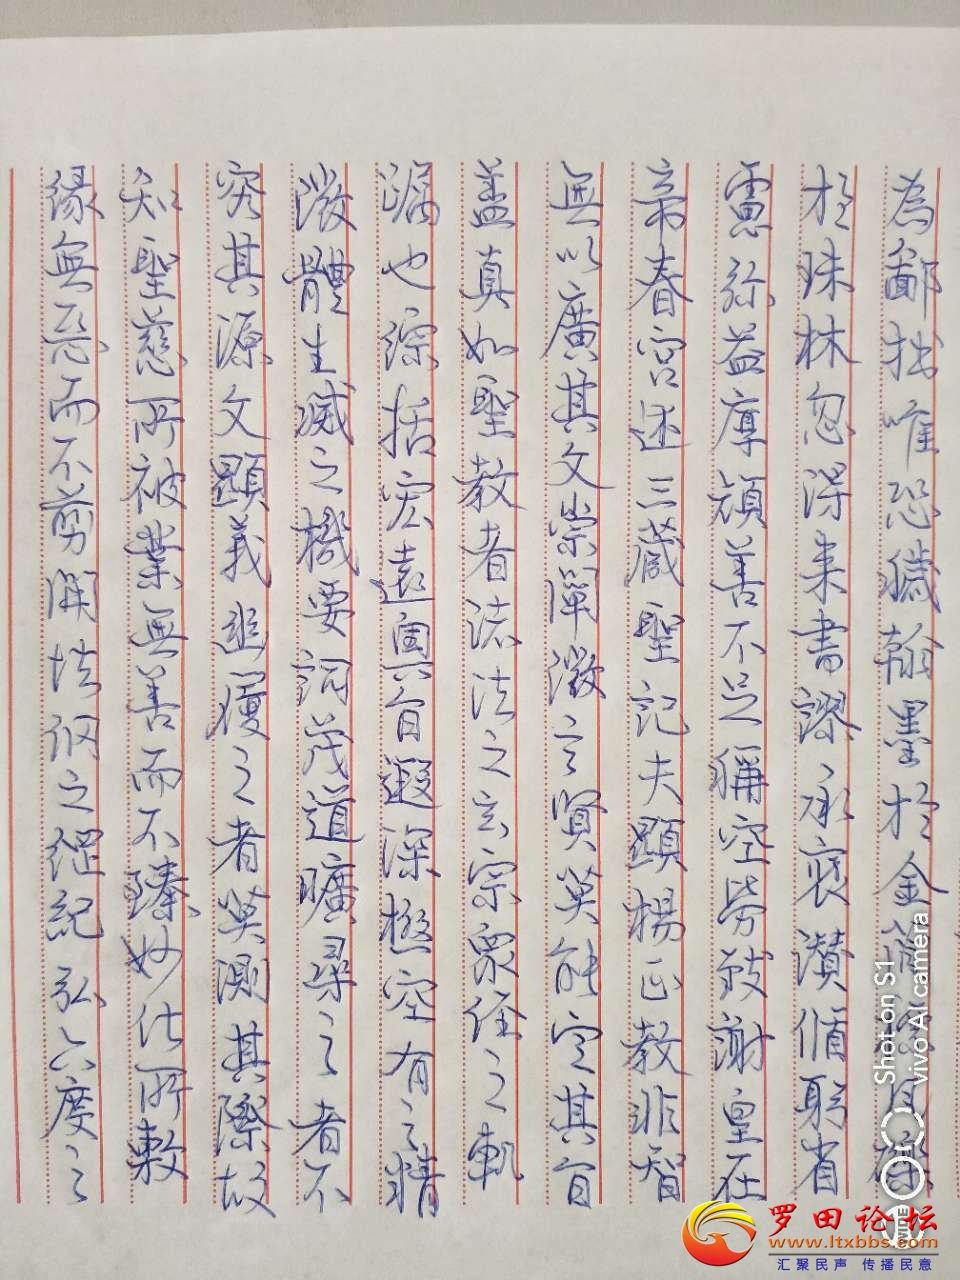 為鄙拙唯恐穢翰墨於金簡標瓦礫
於珠林忽得来書謬承褒讚循躬省
慮弥益厚顏善不足稱空勞致謝皇在
帝春宮述三藏聖記夫顯揚正教非智
無以廣其文崇闡微言賢莫能定其旨
蓋真如聖教者諸法之玄宗眾經之軌
躅也綜括宏遠奧旨遐深極空有之精
微體生滅之機要詞茂道曠尋之者不
究其源文顯義幽履之者莫測其際故
知聖慈所被業無善而不臻妙化所敷
緣無惡而不剪開法網之綱紀弘六度之
Shot on S1
vivo AI camera
罗田论坛
www.ltxbbs.com
汇聚民声 传播民意